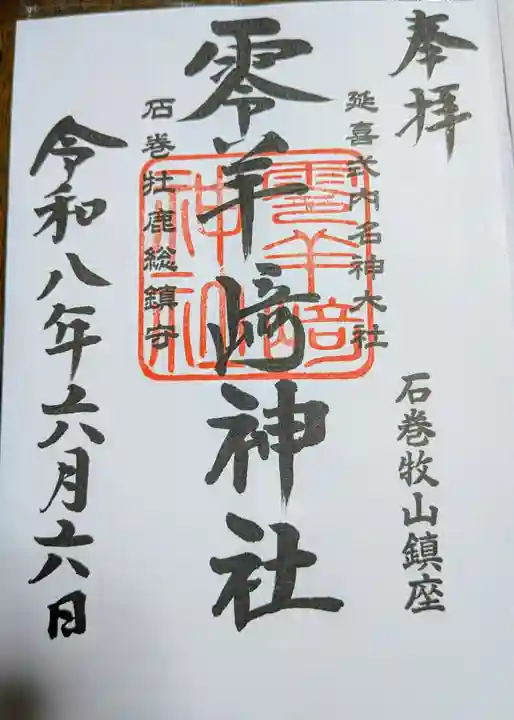 奉拝
延喜式内名神大社
石巻牧山鎮座
零羊﨑神社
零羊﨑神社
石巻牡鹿総鎮守
令和八年六月六日